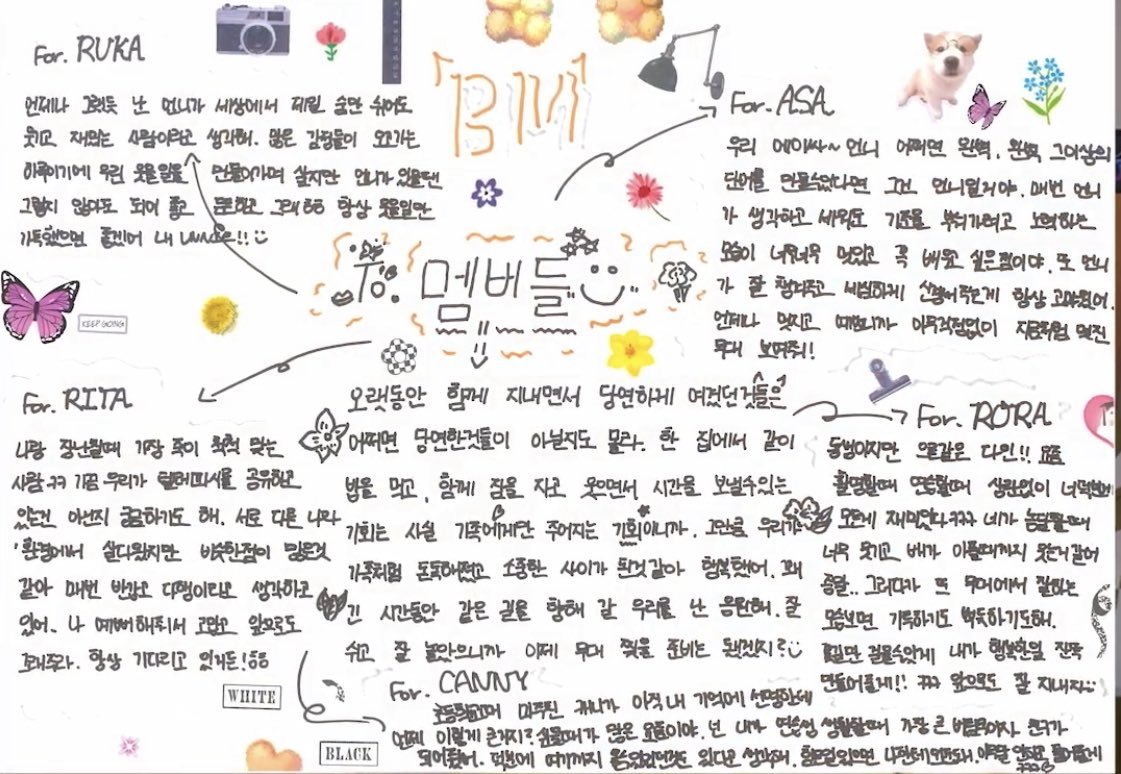 「BM」
To. 멤버들
For. RUKA
언제나 그렇듯 난 언니가 세상에서 제일 숨만 쉬어도
웃기고 재밌는 사람이라고 생각해. 많은 감정들이 오고가는
하루이기에 우린 웃을일을 만들어가며 살지만 언니가 있을땐
그렇지 않아도 되어 좋고 든든하고 그래ㅎㅎ 항상 웃을일만
가득했으면 좋겠어 내
For. ASA
우리 에이싸~ 언니 어쩌면 완벽, 완벽 그이상의
단어를 만들수있다면 그건 언니일거야. 매번 언니
가 생각하고 세워둔 기준을 부숴가려고 노력하는
모습이 너무너무 멋있고 꼭 배우고 싶은점이야. 또 언니
가 잘 챙겨주고 세심하게 신경써주는게 항상 고마웠어.
언제나 멋지고 예쁘니까 아무걱정없이 지금처럼 멋진
무대 보여줘!!
KEEP GOING
For. RITA
나랑 장난칠때 가장 죽이 척척 맞는
사람ㅋㅋ 가끔 우리가 텔레파시를 공유하고
있는건 아닌지 궁금하기도 해. 서로 다른 나라
환경에서 살다왔지만 비슷한점이 많은것
같아 매번 반갑고 다행이라고 생각하고
있어. 나 예뻐해줘서 고맙고 앞으로도
그래주라. 항상 기다리고 있거든!ㅎㅎ
오랫동안 함께 지내면서 당연하게 여겼던 것들은
어쩌면 당연한것들이 아닐지도 몰라. 한 집에서 같이
밥을 먹고, 함께 잠을 자고 웃으면서 시간을 보낼수있는
기회는 사실 가족에게만 주어지는 기회이니까. 그만큼 우리가
가족처럼 돈독해졌고 소중한 사이가 된것같아 행복했어. 꽤
긴 시간동안 같은 길을 향해 갈 우리를 난 응원해. 잘
쉬고 잘 놀았으니까 이제 무대 찢을 준비는 됐겠지?
For. RORA
동생이지만 언니같은 다인!! 요즘
촬영할때 연습할때 상관없이 너덕분에
모든게 재미있다ㅋㅋㅋ 네가 농담할때
너무 웃기고 배가 아플때까지 웃는거같어
증말.. 그러다가 또 무대에서 잘하는
모습보면 기특하기도 뿌듯하기도해.
꽃길만 걸을수있게 내가 행복한일 잔뜩
만들어줄게!! ㅋㅋ 앞으로도 잘 지내자
WHITE
BLACK
For. CANNY
초등학교때 마주친 캐니가 아직 내 기억에 선명한데
언제 이렇게 큰거지? 고마울때가 많은 요즘이야. 넌 내가 연습생 생활할때 가장 큰 버팀목이자 친구가
되어줬어. 덕분에 여기까지 올수있었던것도 있다고 생각해. 힘든일있으면 나한테 기대도돼.